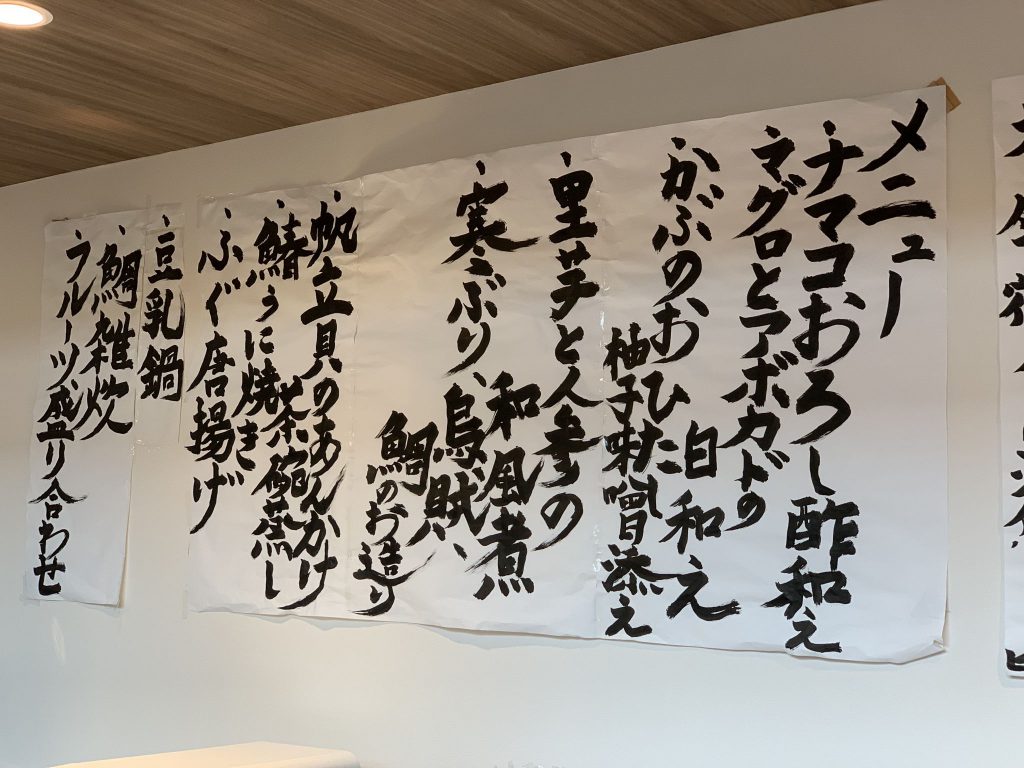 メニュー
・ナマコおろし酢和え
・マグロとアボカドの
白和え
・かぶのおひたし
柚子味噌添え
・里芋と人参の
和風煮
・寒ぶり、烏賊、
鯛のお造り
・帆立貝のあんかけ
茶碗蒸し
・鰆うに焼き
・ふぐ唐揚げ
・豆乳鍋
・鯛雑炊
・フルーツ盛り合わせ